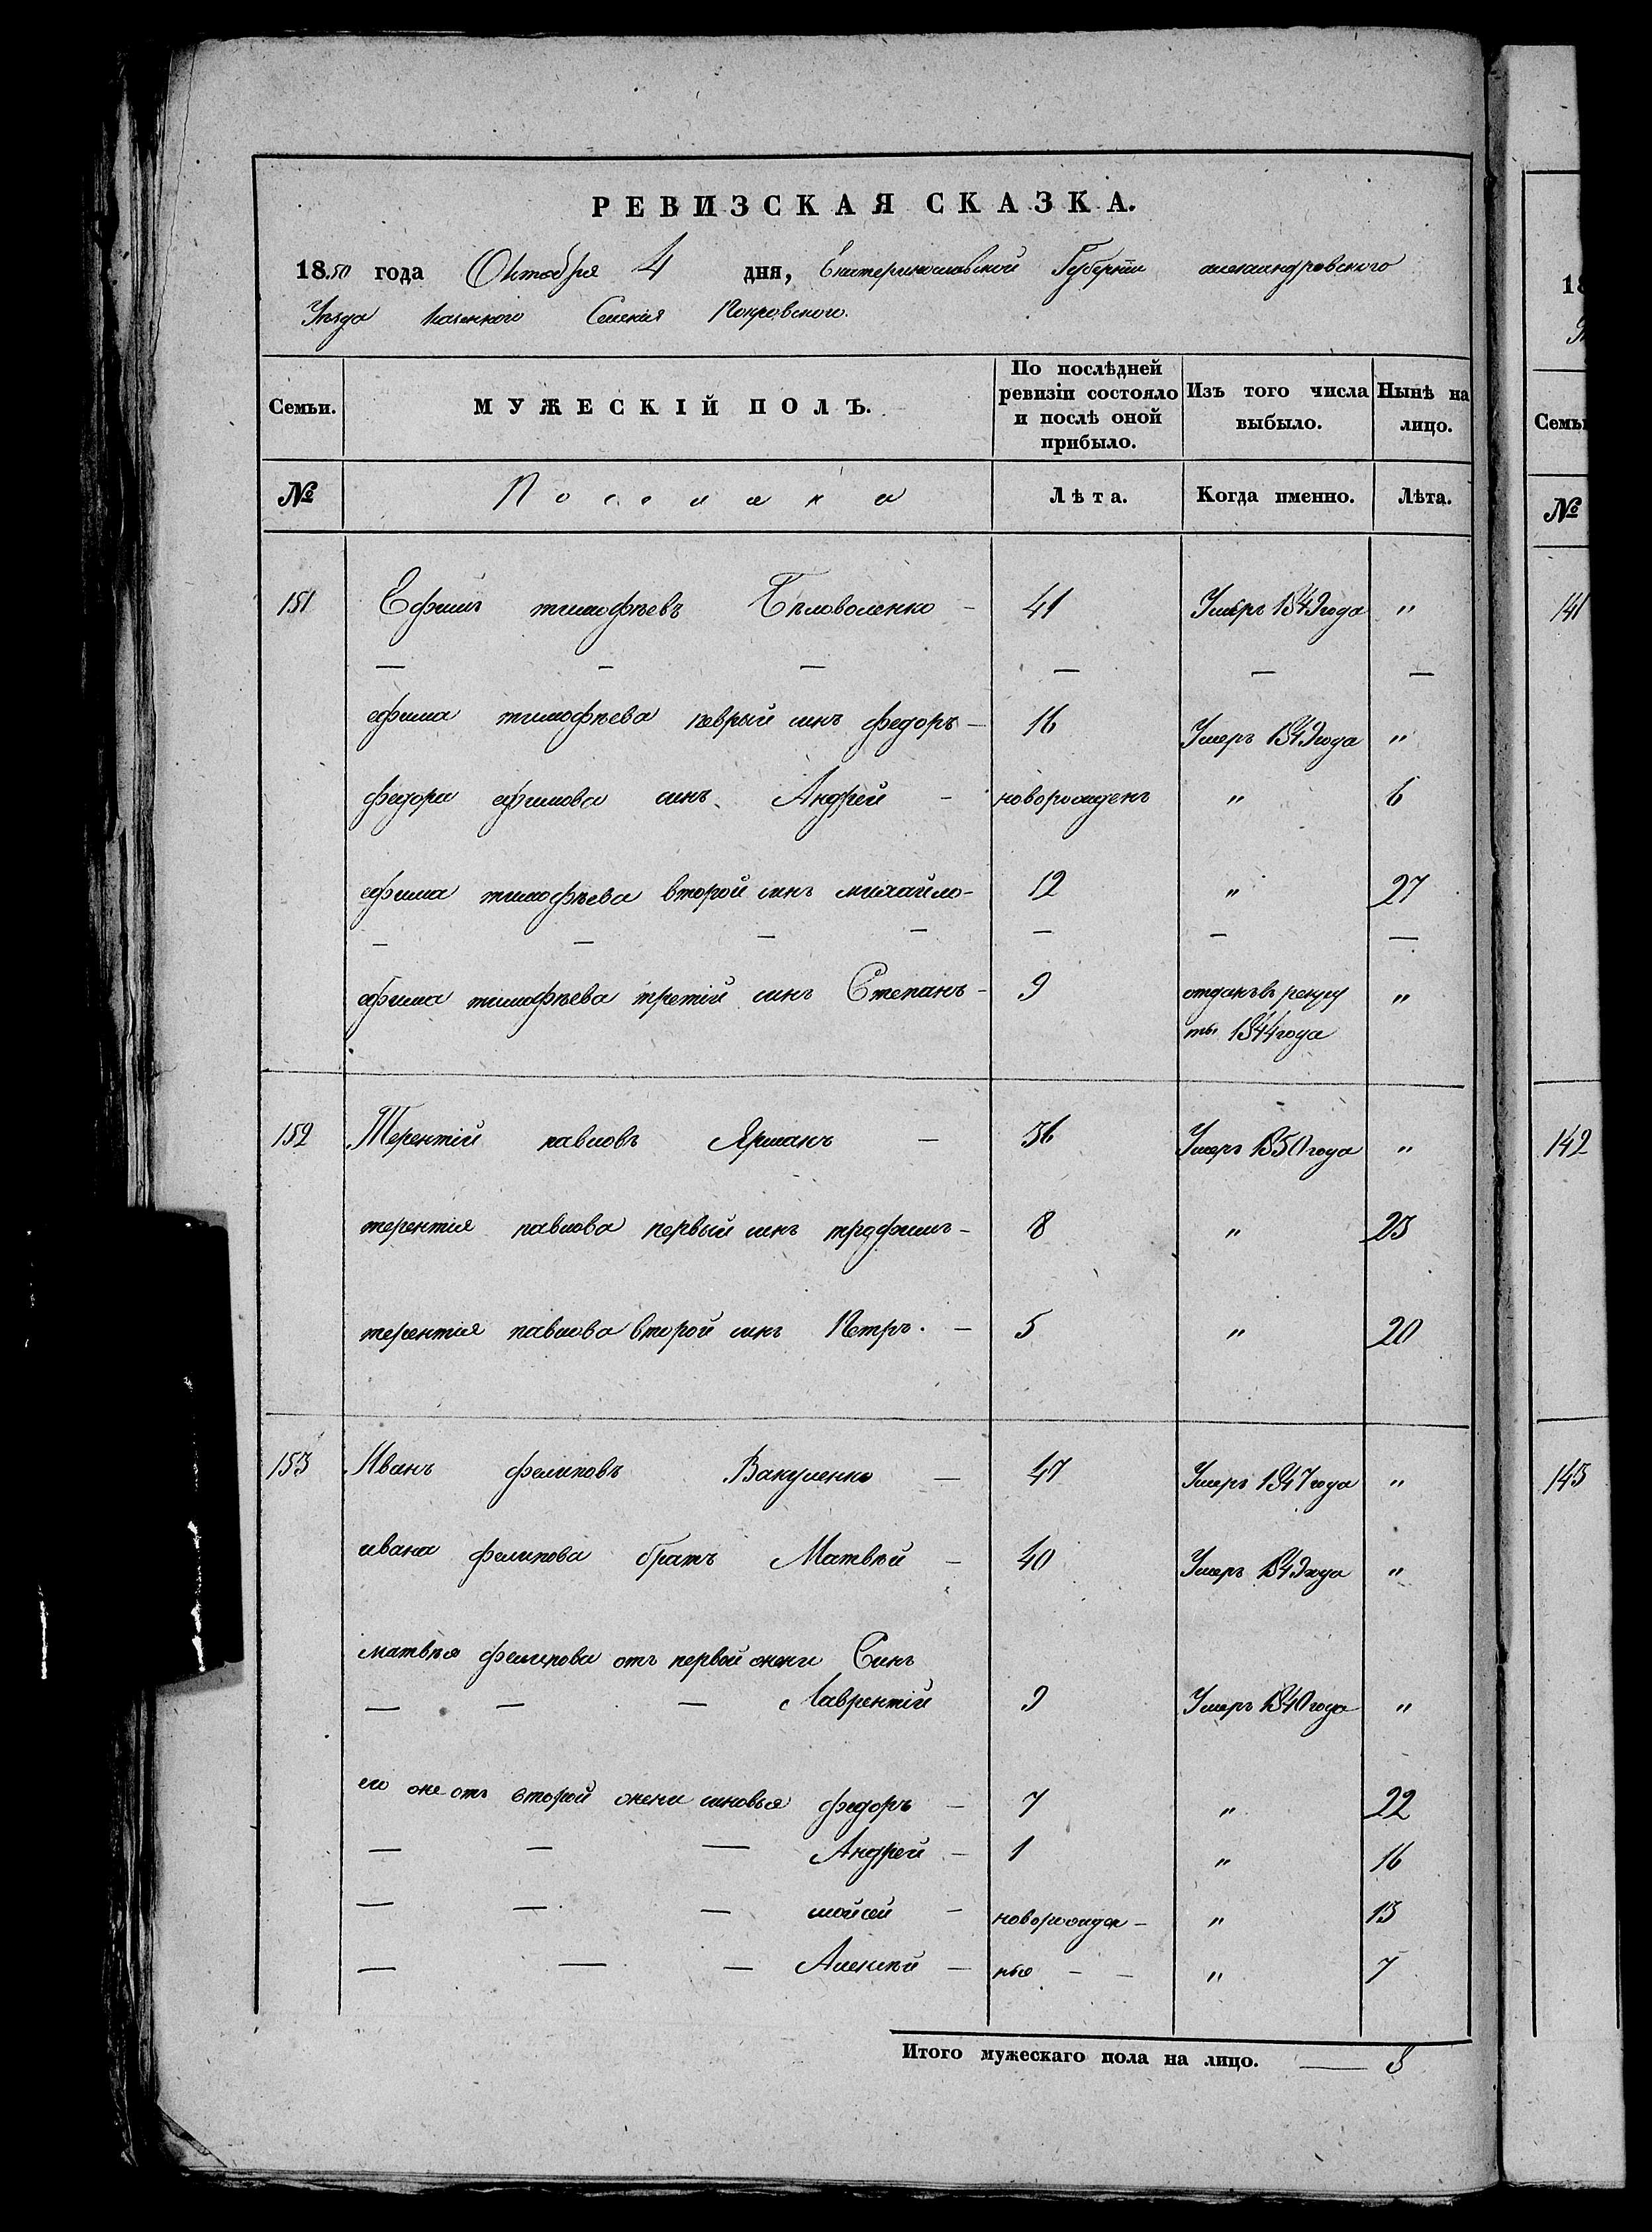 РЕВИЗСКАЯ СКАЗКА.
1850 года Октября 4 дня, Екатеринославской Губерніи александровского
Уезда казенного Селенія Покровского.
Семьи. МУЖЕСКІЙ ПОЛЪ. По послѣдней ревизіи состояло и послѣ оной прибыло. Изъ того числа выбыло. Нынѣ на лицо.
№ Лѣта. Когда именно. Лѣта.
151 Ефимъ тимофѣевъ Бѣловоленко – 41 Умеръ 1849 года "
— — — — — —
ефима тимофѣева певрый синъ федоръ – 16 Умеръ 1849 года "
федора ефимова синъ Андрей – новорожденъ " 6
ефима тимофѣева второй синъ михайло – 12 " 27
— — — — — — —
ефима тимофѣева третій синъ Степанъ – 9 отданъ въ рекру "
ты 1844 года
152 Терентій павловъ Ярманъ – 36 Умеръ 1850 года "
терентія павлова первый синъ трофимъ – 8 " 23
терентія павлова второй синъ Петръ. – 5 " 20
153 Иванъ фелиповъ Вакуленко – 47 Умеръ 1847 года "
ивана фелипова братъ Матвѣй – 40 Умеръ 1849 года "
матвѣя фелипова отъ первой жени Синъ
— — — Лаврентій 9 Умеръ 1840 года "
его же отъ второй жени синовья федоръ – 7 " 22
— — — Андрей – 1 " 16
— — — мойсей – новорожден – " 13
— — — Алексѣй – ныя – – " 7
Итого мужескаго пола на лицо. — 8
18
Семьи
№
141
142
143